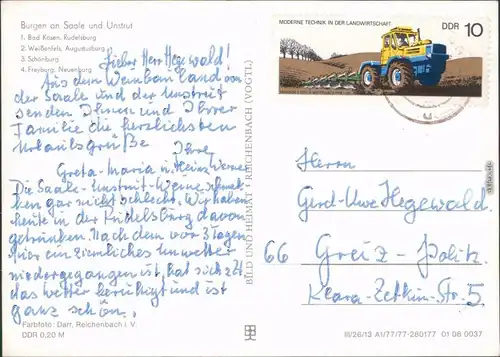 Burgen an Saale und Unstrut
1. Bad Kösen, Rudelsburg
2. Weißenfels, Augustusburg
3. Schönburg
4. Freyburg, Neuenburg
Lieber Herr Hegewald!
Aus dem Weinbauland von
der Saale und der Unstrut
senden Ihnen und Ihrer
Familie die herzlichsten
Urlaubsgrüße
Ihre
Greta-Maria u. Heinz Werner
Die Saale-Unstrut-Weine schmek-
ken gar nicht schlecht. Wir haben
heute in der Rudelsburg davon
getrunken. Nach dem vor 3 Tagen
hier ein ziemliches Unwetter
niedergegangen ist, hat sich jetzt
das Wetter beruhigt und ist
ganz schön.
Farbfoto: Darr, Reichenbach i. V.
DDR 0,20 M
BILD UND HEIMAT REICHENBACH (VOGTL)
MODERNE TECHNIK IN DER LANDWIRTSCHAFT
DDR 10
Herrn
Gerd-Uwe Hegewald
66 Greiz-Pohlitz
Klara-Zetkin-Str. 5
III/26/13 A1/77/77-280177 01 08 0037